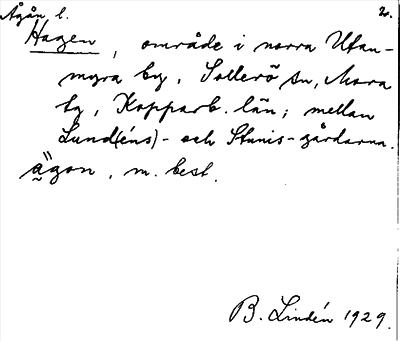 Ågån l. 2.
Hagen, område i norra Utan-
myra by, Sollerö sn, Mora
tg, Kopparb. län; mellan
Lund(éns)- och Stunis-gårdarna.
ägon, m. best.
B. Lindén 1929.